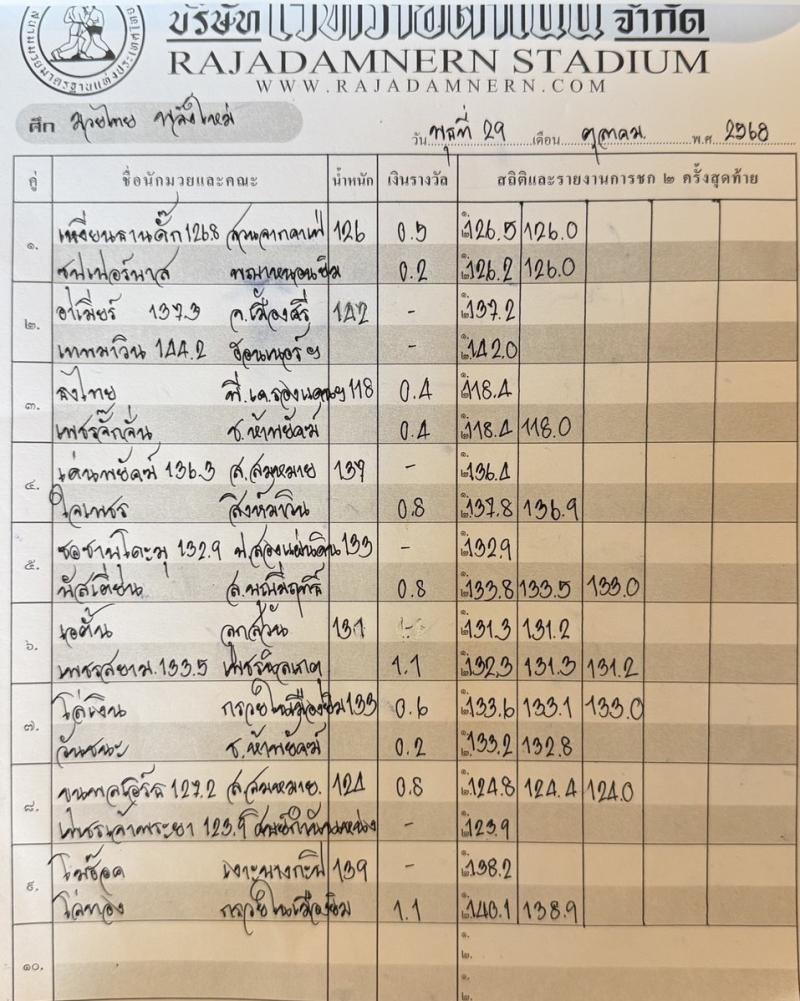 สนามมวยมาตรฐานแห่งประเทศไทย
บริษัท เวทีราชดำเนิน จำกัด
RAJADAMNERN STADIUM
WWW.RAJADAMNERN.COM
ศึก มวยไทย พลังใหม่
วัน พุธที่ 29 เดือน ตุลาคม พ.ศ 2568
คู่ ชื่อนักมวยและคณะ น้ำหนัก เงินรางวัล สถิติและรายงานการชก ๒ ครั้งสุดท้าย
๑. 126.8 126 0.5 ๑. 126.5 126.0
0.2 ๒. 126.2 126.0
๒. 137.3 อ.เมืองสิริ 142 - ๑. 137.2
เทพมาวิน 144.2 - ๒. 142.0
๓. ธงไทย 118 0.4 ๑. 118.4
เพชรจั๊กจั่น ช.ห้าพยัคฆ์ 0.4 ๒. 118.4 118.0
๔. เด่นพยัคฆ์ 136.3 ส.สมหมาย 137 - ๑. 136.4
ใจเพชร สิงห์มาวิน 0.8 ๒. 137.8 136.9
๕. 132.9 ป.สองแผ่นดิน 133 - ๑. 132.9
0.8 ๒. 133.8 133.5 133.0
๖. ลูกสวน 131 - ๑. 131.3 131.2
เพชรสยาม 133.5 1.1 ๒. 132.3 131.3 131.2
๗. โล่เงิน กรวยในเมืองยิม 133 0.6 ๑. 133.6 133.1 133.0
วันชนะ ช.ห้าพยัคฆ์ 0.2 ๒. 133.2 132.8
๘. 127.2 ส.สมหมาย. 124 0.8 ๑. 124.8 124.4 124.0
เพชรเจ้าพระยา 123.9 - ๒. 123.9
๙. 139 - ๑. 138.2
โล่ทอง กรวยในเมืองยิม 1.1 ๒. 140.1 138.9
๑๐. ๑.
๒.
๑.
๒.